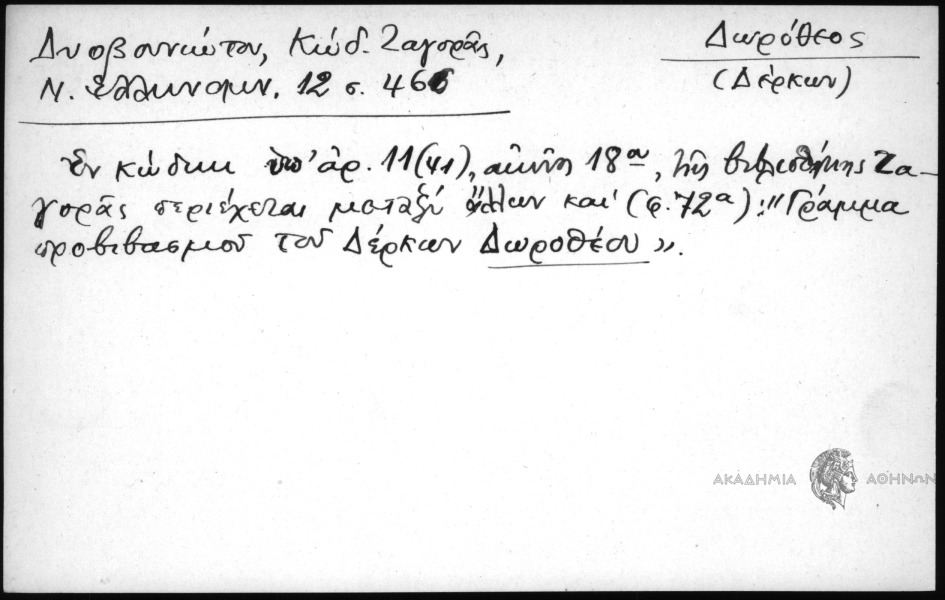 Δυοβουνιώτου, Κώδ. Ζαγορᾶς,
Ν. Ἑλληνομν. 12 σ. 466
Δωρόθεος
(Δέρκων)
Ἐν κώδικι ὑπ' ἀρ. 11(41), αἰῶνος 18ου, τῆς βιβλιοθήκης Ζα-
γορᾶς περιέχεται μεταξὺ ἄλλων καὶ (φ. 72α): «Γράμμα
προβιβασμοῦ τοῦ Δέρκων Δωροθέου».
ΑΚΑΔΗΜΙΑ ΑΘΗΝΩΝ